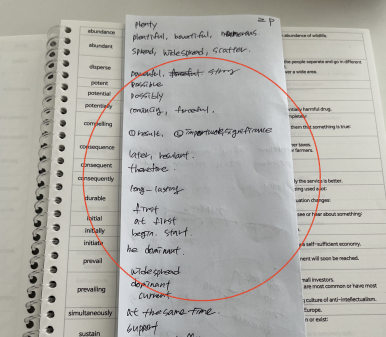 plenty
2P
abundance
abundance of wildlife.
plentiful, bountiful, numerous
abundant
spread, widespread, scatter
disperse
people separate and go in different
over a wide area.
powerful, strong
potent
possible
potential
possibly
potentially
potentially harmful drug.
convincing, forceful.
compelling
them that something is true:
① result, ② importance, significance
consequence
later, resultant.
consequent
therefore.
consequently
the service is better.
long-lasting
durable
first
initial
see or hear about something
at first
initially
begin. start.
initiate
a self-sufficient economy.
be dominant.
prevail
ment will soon be reached.
widespread
small investors.
dominant
prevailing
are most common or have most
current
culture of anti-intellectualism.
at the same time.
simultaneously
Europe.
support
sustain
or exist: